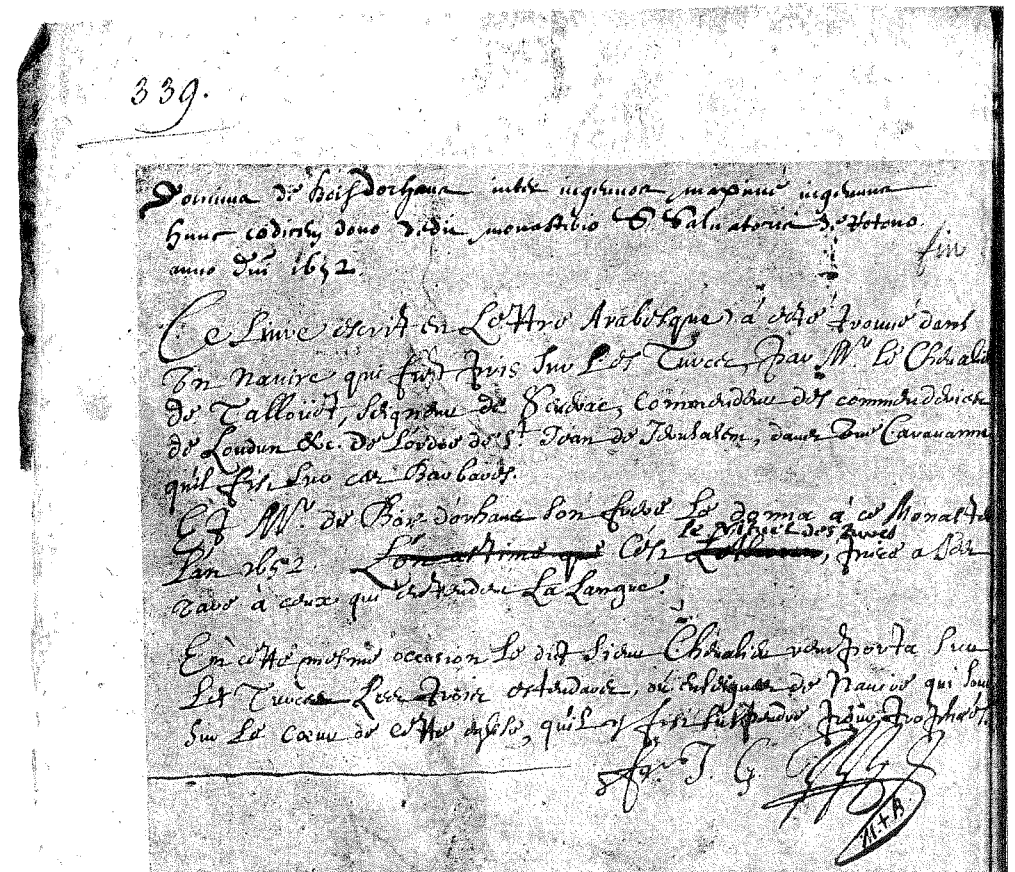 339.
Domina de Boisdorhant inter ingenuas maxime ingenua
hunc codicem dono dedit monasterio S. Salvatoris de Rotono
anno Dni 1652.
fin
Ce Livre escrit en Lettre Arabesque, à esté trouvé dans
Un Navire qui fust pris sur Les Turcs, par Mr. le Chevalier
de Tallouet, seigneur de Severac, Commendeur des commenderies
de Loudun &c. De L'ordre de St. Jean de Jerusalem, dans Une Caravanne
qu'il fist sur ces Barbares.
Et Mr. de Bois dorhant son frere Le donna à ce Monastere
le rituel des Turcs
L'an 1652. L'on estime que C'est, à
à ceux qui entendent La Langue.
En cette mesme occasion Le dit sieur Chevalier remporta sur
Les Turcs Les trois estendars, où enseignes de Navire qui sont
sur Le Cœur de cette esglise, qu'il y fist suspendre pour trophées.
fr. J. G.
M+B.